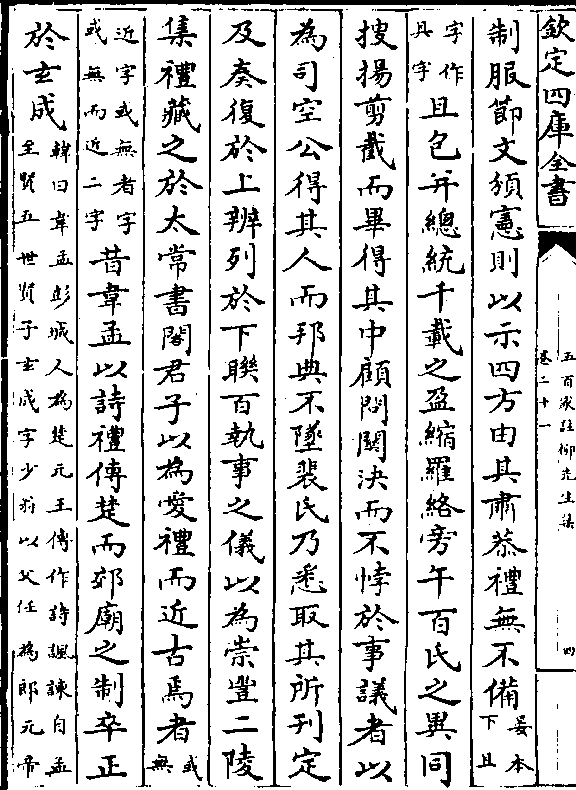 欽定四庫全書
五百家註柳先生集
卷二十一
四
制服節文頒憲則以示四方由其肅恭禮無不備晏本
下且
字作
具字且包并總統千載之盈縮羅絡旁午百氏之異同
搜揚剪截而畢得其中顧問關決而不悖於事議者以
為司空公得其人而邦典不墜裴氏乃悉取其所刊定
及奏復於上辨列於下聯百執事之儀以為崇豐二陵
集禮藏之於太常書閣君子以為愛禮而近古焉者或
無
近字或無者字
或無而近二字昔韋孟以詩禮傳楚而郊廟之制卒正
於玄成韓曰韋孟彭城人為楚元王傅作詩諷諫自孟
至賢五世賢子玄成字少翁以父任為郎元帝